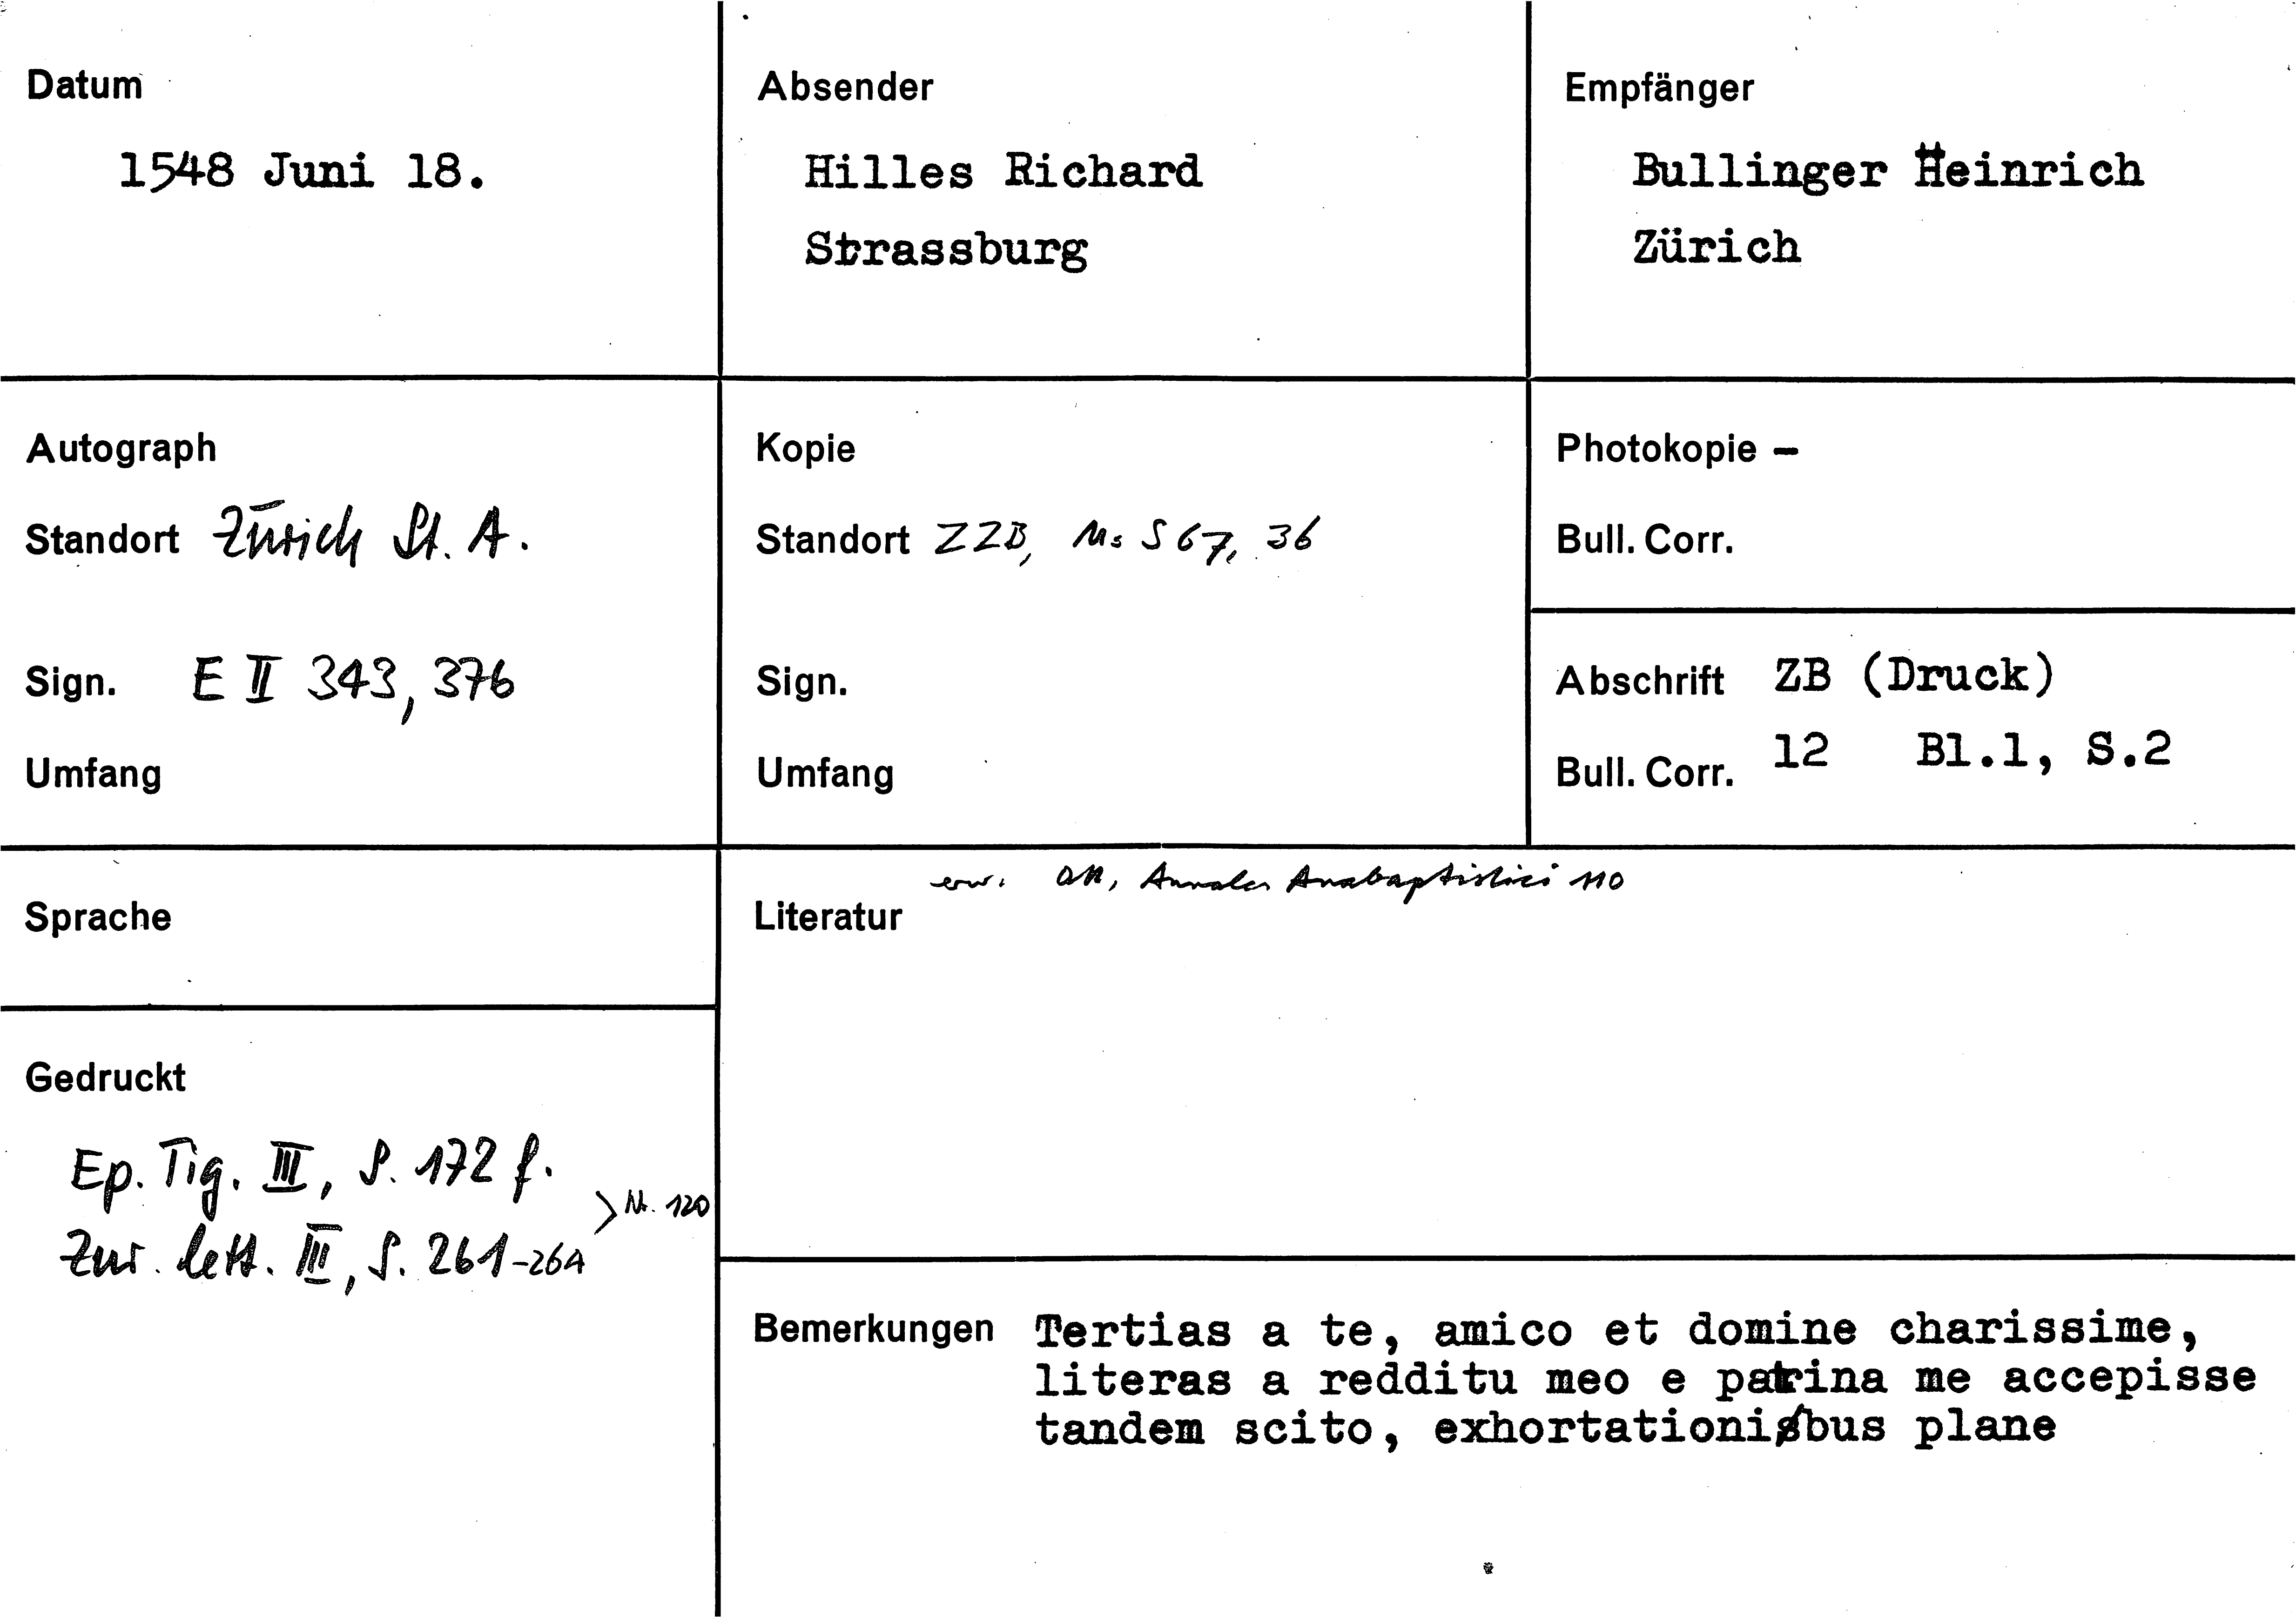 Datum
1548 Juni 18.
Absender
Hilles Richard
Strassburg
Empfänger
Bullinger Heinrich
Zürich
Autograph
Standort Zürich St. A.
Sign. E II 343, 376
Umfang
Kopie
Standort ZZB, Ms S 67, 36
Sign.
Umfang
Photokopie –
Bull. Corr.
Abschrift ZB (Druck)
Bull. Corr. 12 Bl.1, S.2
Sprache
erw. Annales Anabaptistici 110
Literatur
Gedruckt
Ep. Tig. III, S. 172 f.
Zur. lett. III, S. 261-264
> Nr. 120
Bemerkungen Tertias a te, amico et domine charissime,
literas a redditu meo e patrina me accepisse
tandem scito, exhortationibus plane